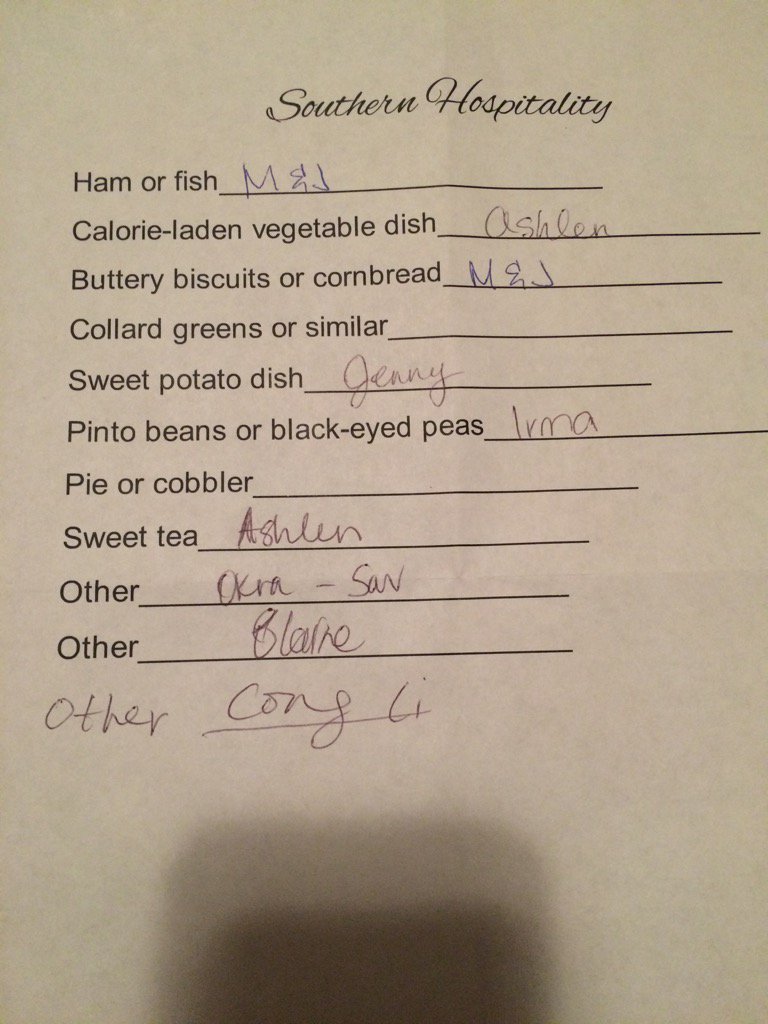 Southern Hospitality
Ham or fish M & J
Calorie-laden vegetable dish Ashlen
Buttery biscuits or cornbread M & J
Collard greens or similar
Sweet potato dish Jenny
Pinto beans or black-eyed peas Irma
Pie or cobbler
Sweet tea Ashlen
Other Okra -
Other Blaine
Other Cong Li